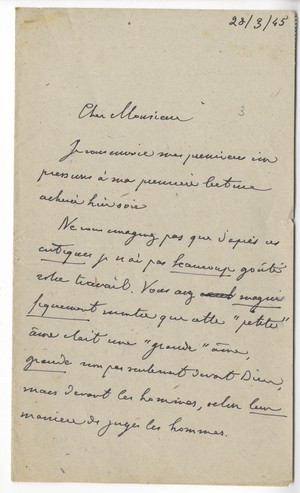 28/3/45
3
Cher Monsieur
Je vous envoie mes premières im
pressions à ma première lecture
achevée hier soir
Ne vous imaginez pas que d'après ces
critiques je n'ai pas beaucoup goûté
votre travail. Vous avez magni
fiquement montré que cette "petite"
âme était une "grande" âme,
grande non pas seulement devant Dieu,
mais devant les hommes, selon leur
manière de juger les hommes.